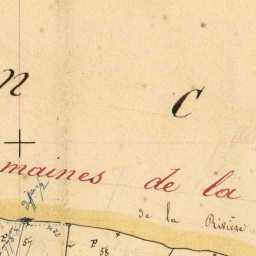 n C
maines de la
de la Rivière
P 57
P 58